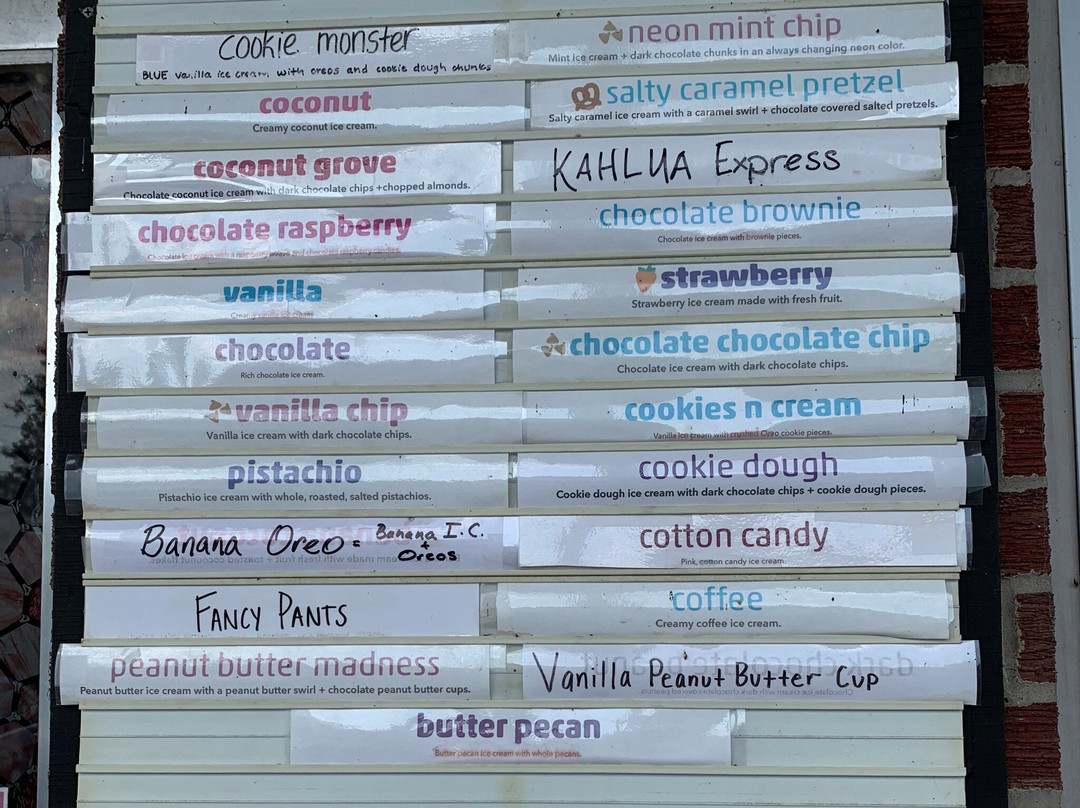 cookie monster
BLUE vanilla ice cream with oreos and cookie dough chunks
neon mint chip
Mint ice cream + dark chocolate chunks in an always changing neon color.
coconut
Creamy coconut ice cream.
salty caramel pretzel
Salty caramel ice cream with a caramel swirl + chocolate covered salted pretzels.
coconut grove
Chocolate coconut ice cream with dark chocolate chips +chopped almonds.
KAHLUA Express
chocolate raspberry
Chocolate ice cream with a raspberry swirl and chocolate raspberry candies.
chocolate brownie
Chocolate ice cream with brownie pieces.
vanilla
Creamy vanilla ice cream.
strawberry
Strawberry ice cream made with fresh fruit.
chocolate
Rich chocolate ice cream.
chocolate chocolate chip
Chocolate ice cream with dark chocolate chips.
vanilla chip
Vanilla ice cream with dark chocolate chips.
cookies n cream
Vanilla ice cream with crushed Oreo cookie pieces.
pistachio
Pistachio ice cream with whole, roasted, salted pistachios.
cookie dough
Cookie dough ice cream with dark chocolate chips + cookie dough pieces.
Banana Oreo = Banana I.C.
+
Oreos
cotton candy
Pink, cotton candy ice cream
FANCY PANTS
coffee
Creamy coffee ice cream.
peanut butter madness
Peanut butter ice cream with a peanut butter swirl + chocolate peanut butter cups.
Vanilla Peanut Butter Cup
butter pecan
Butter pecan ice cream with whole pecans.